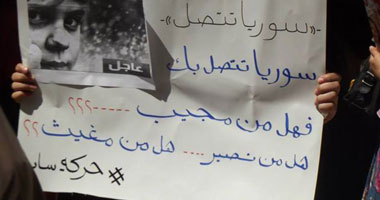 -«سوريا تتصل»-
عاجل
سوريا تتصل بك
فهل من مجيب -----؟؟؟
هل من نصير .... هل من مغيث؟؟
#حركة